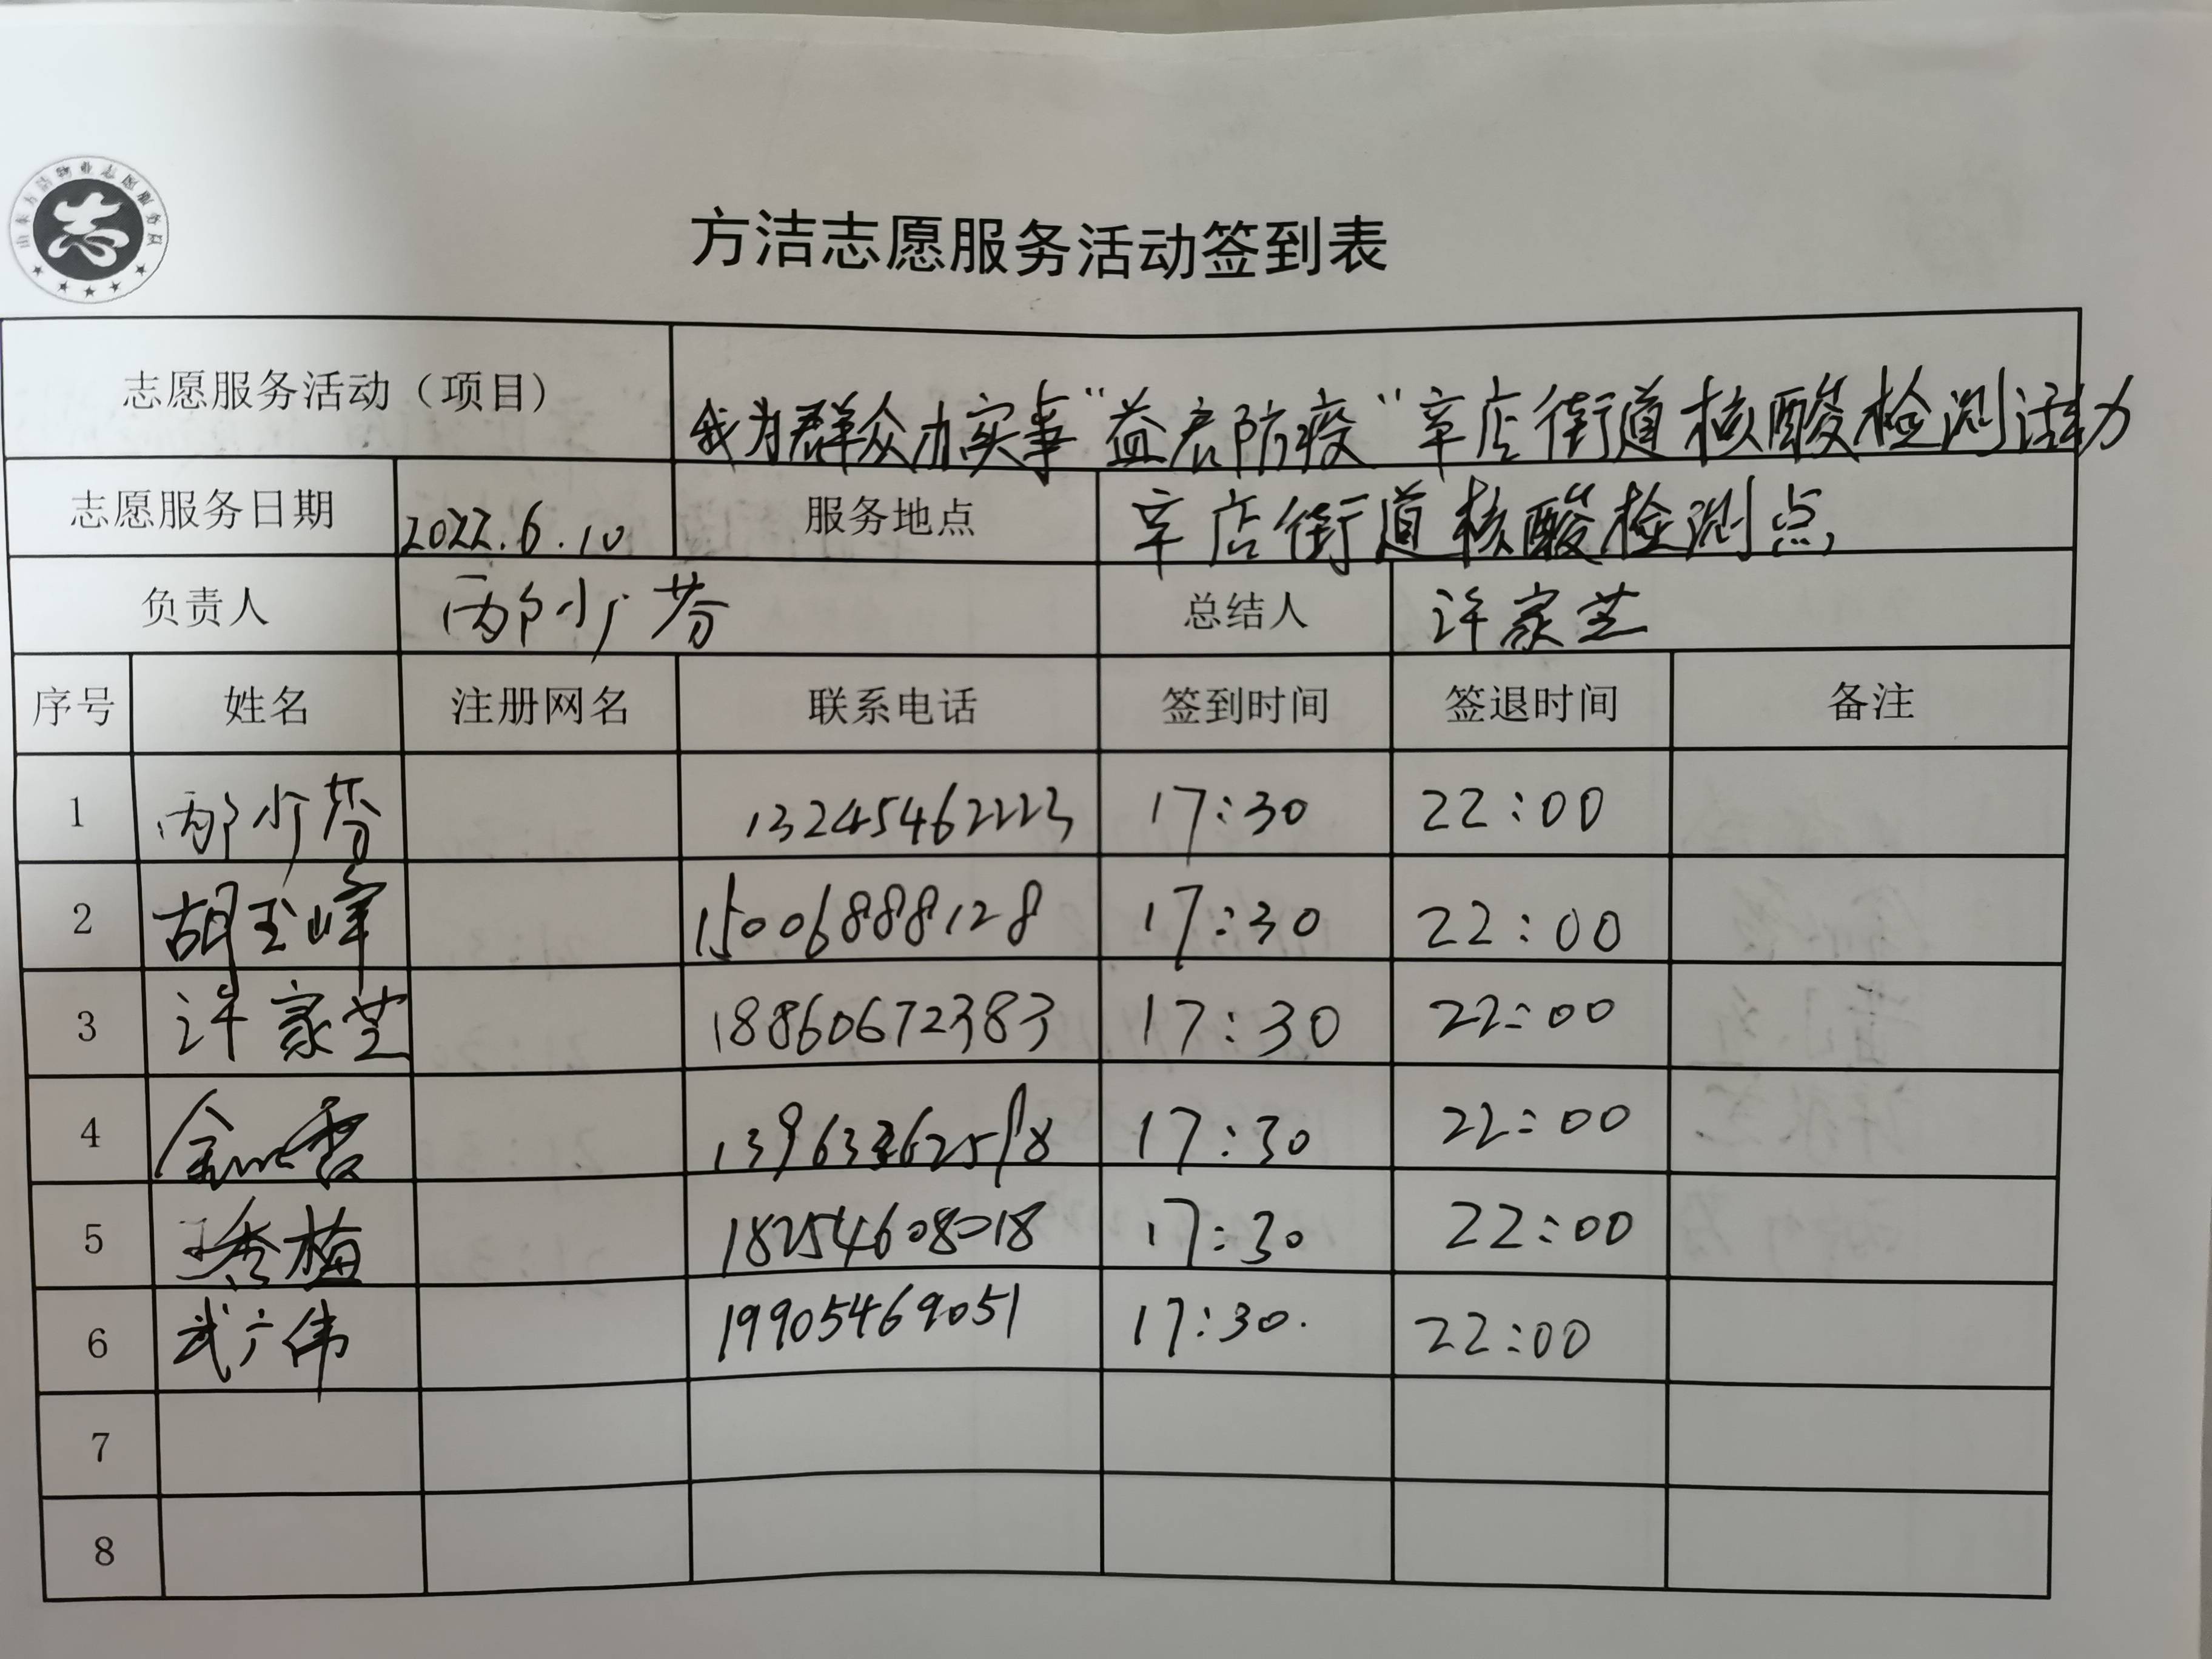 山东方洁物业志愿服务队
志
方洁志愿服务活动签到表
志愿服务活动（项目） 我为群众办实事“益启防疫“辛店街道核酸检测活动
志愿服务日期 2022.6.10 服务地点 辛店街道核酸检测点
负责人 邴少芬 总结人 许家芝
序号 姓名 注册网名 联系电话 签到时间 签退时间 备注
1 邴少芬 13245462223 17:30 22:00
2 胡玉峰 15006888128 17:30 22:00
3 许家芝 18860672383 17:30 22:00
4 17:30 22:00
5 王秀梅 18254608018 17:30 22:00
6 武广伟 19905469051 17:30. 22:00
7
8